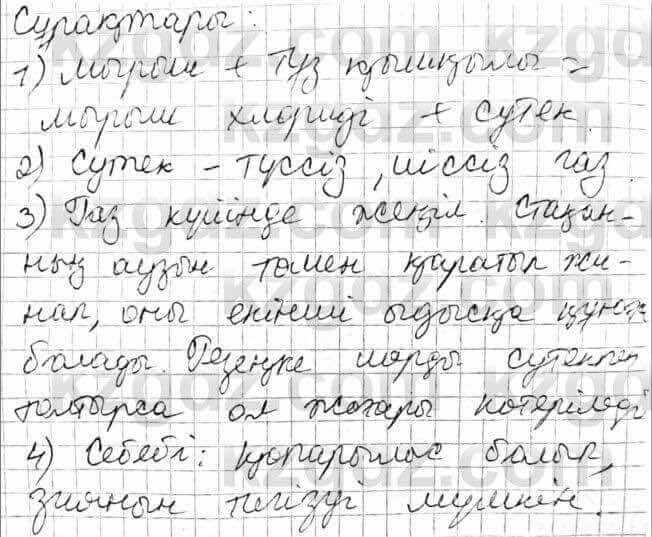 Сұрақтары:
1) Мырыш + Тұз қышқылы =
мырыш хлориді + сутек.
2) Сутек – түссіз, иіссіз газ.
3) Газ күйінде жеңіл. Стақан-
ның аузын төмен қаратып жи-
нап, оны екінші ыдысқа құюға
болады. Резеңке шарды сутекпен
толтырса ол жоғары көтеріледі
4) Себебі: қопарылыс болып,
зиянын тигізуі мүмкін.
kzgdz.com